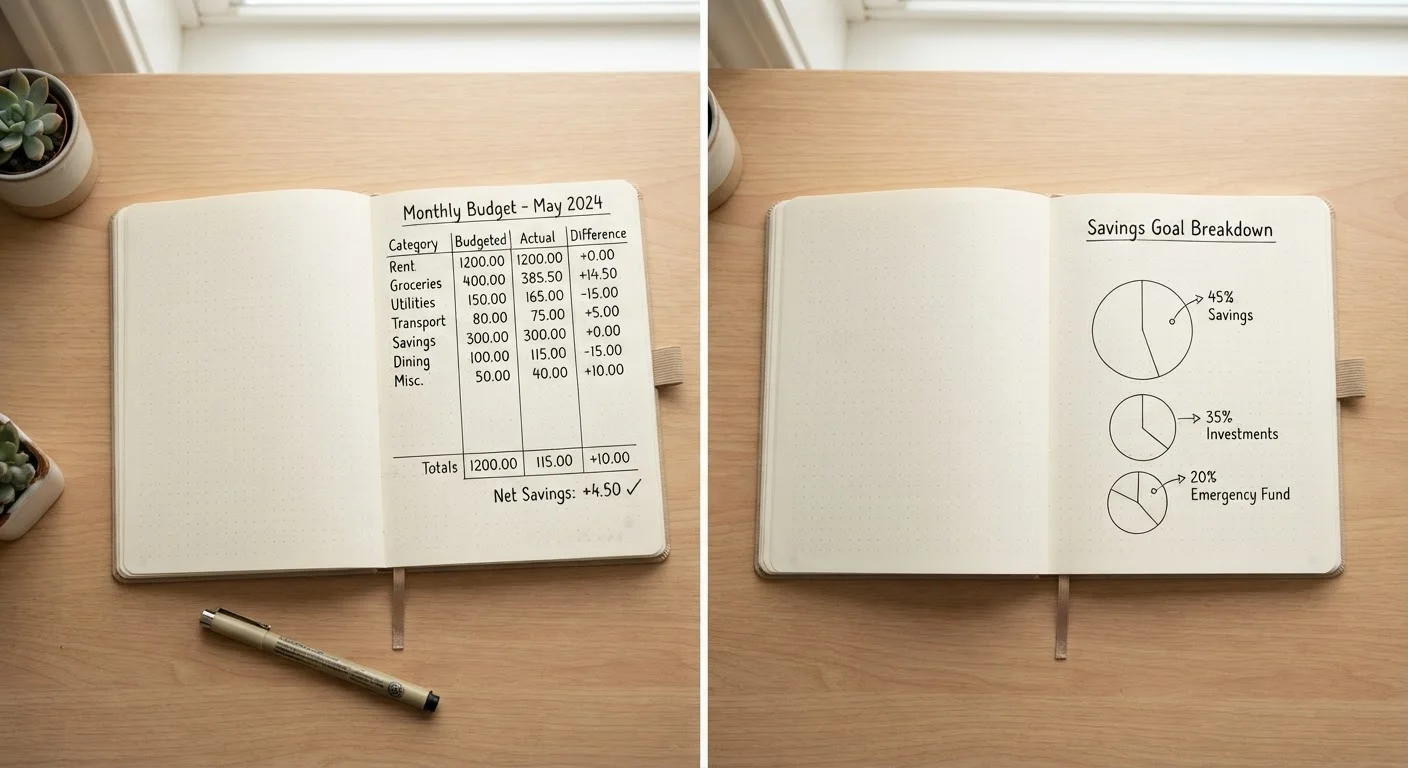 Monthly Budget - May 2024
Category Budgeted Actual Difference
Rent 1200.00 1200.00 +0.00
Groceries 400.00 385.50 +14.50
Utilities 150.00 165.00 -15.00
Transport 80.00 75.00 +5.00
Savings 300.00 300.00 +0.00
Dining 100.00 115.00 -15.00
Misc. 50.00 40.00 +10.00
Totals 1200.00 115.00 +10.00
Net Savings: +4.50 ✓
Savings Goal Breakdown
45%
Savings
35%
Investments
20%
Emergency Fund